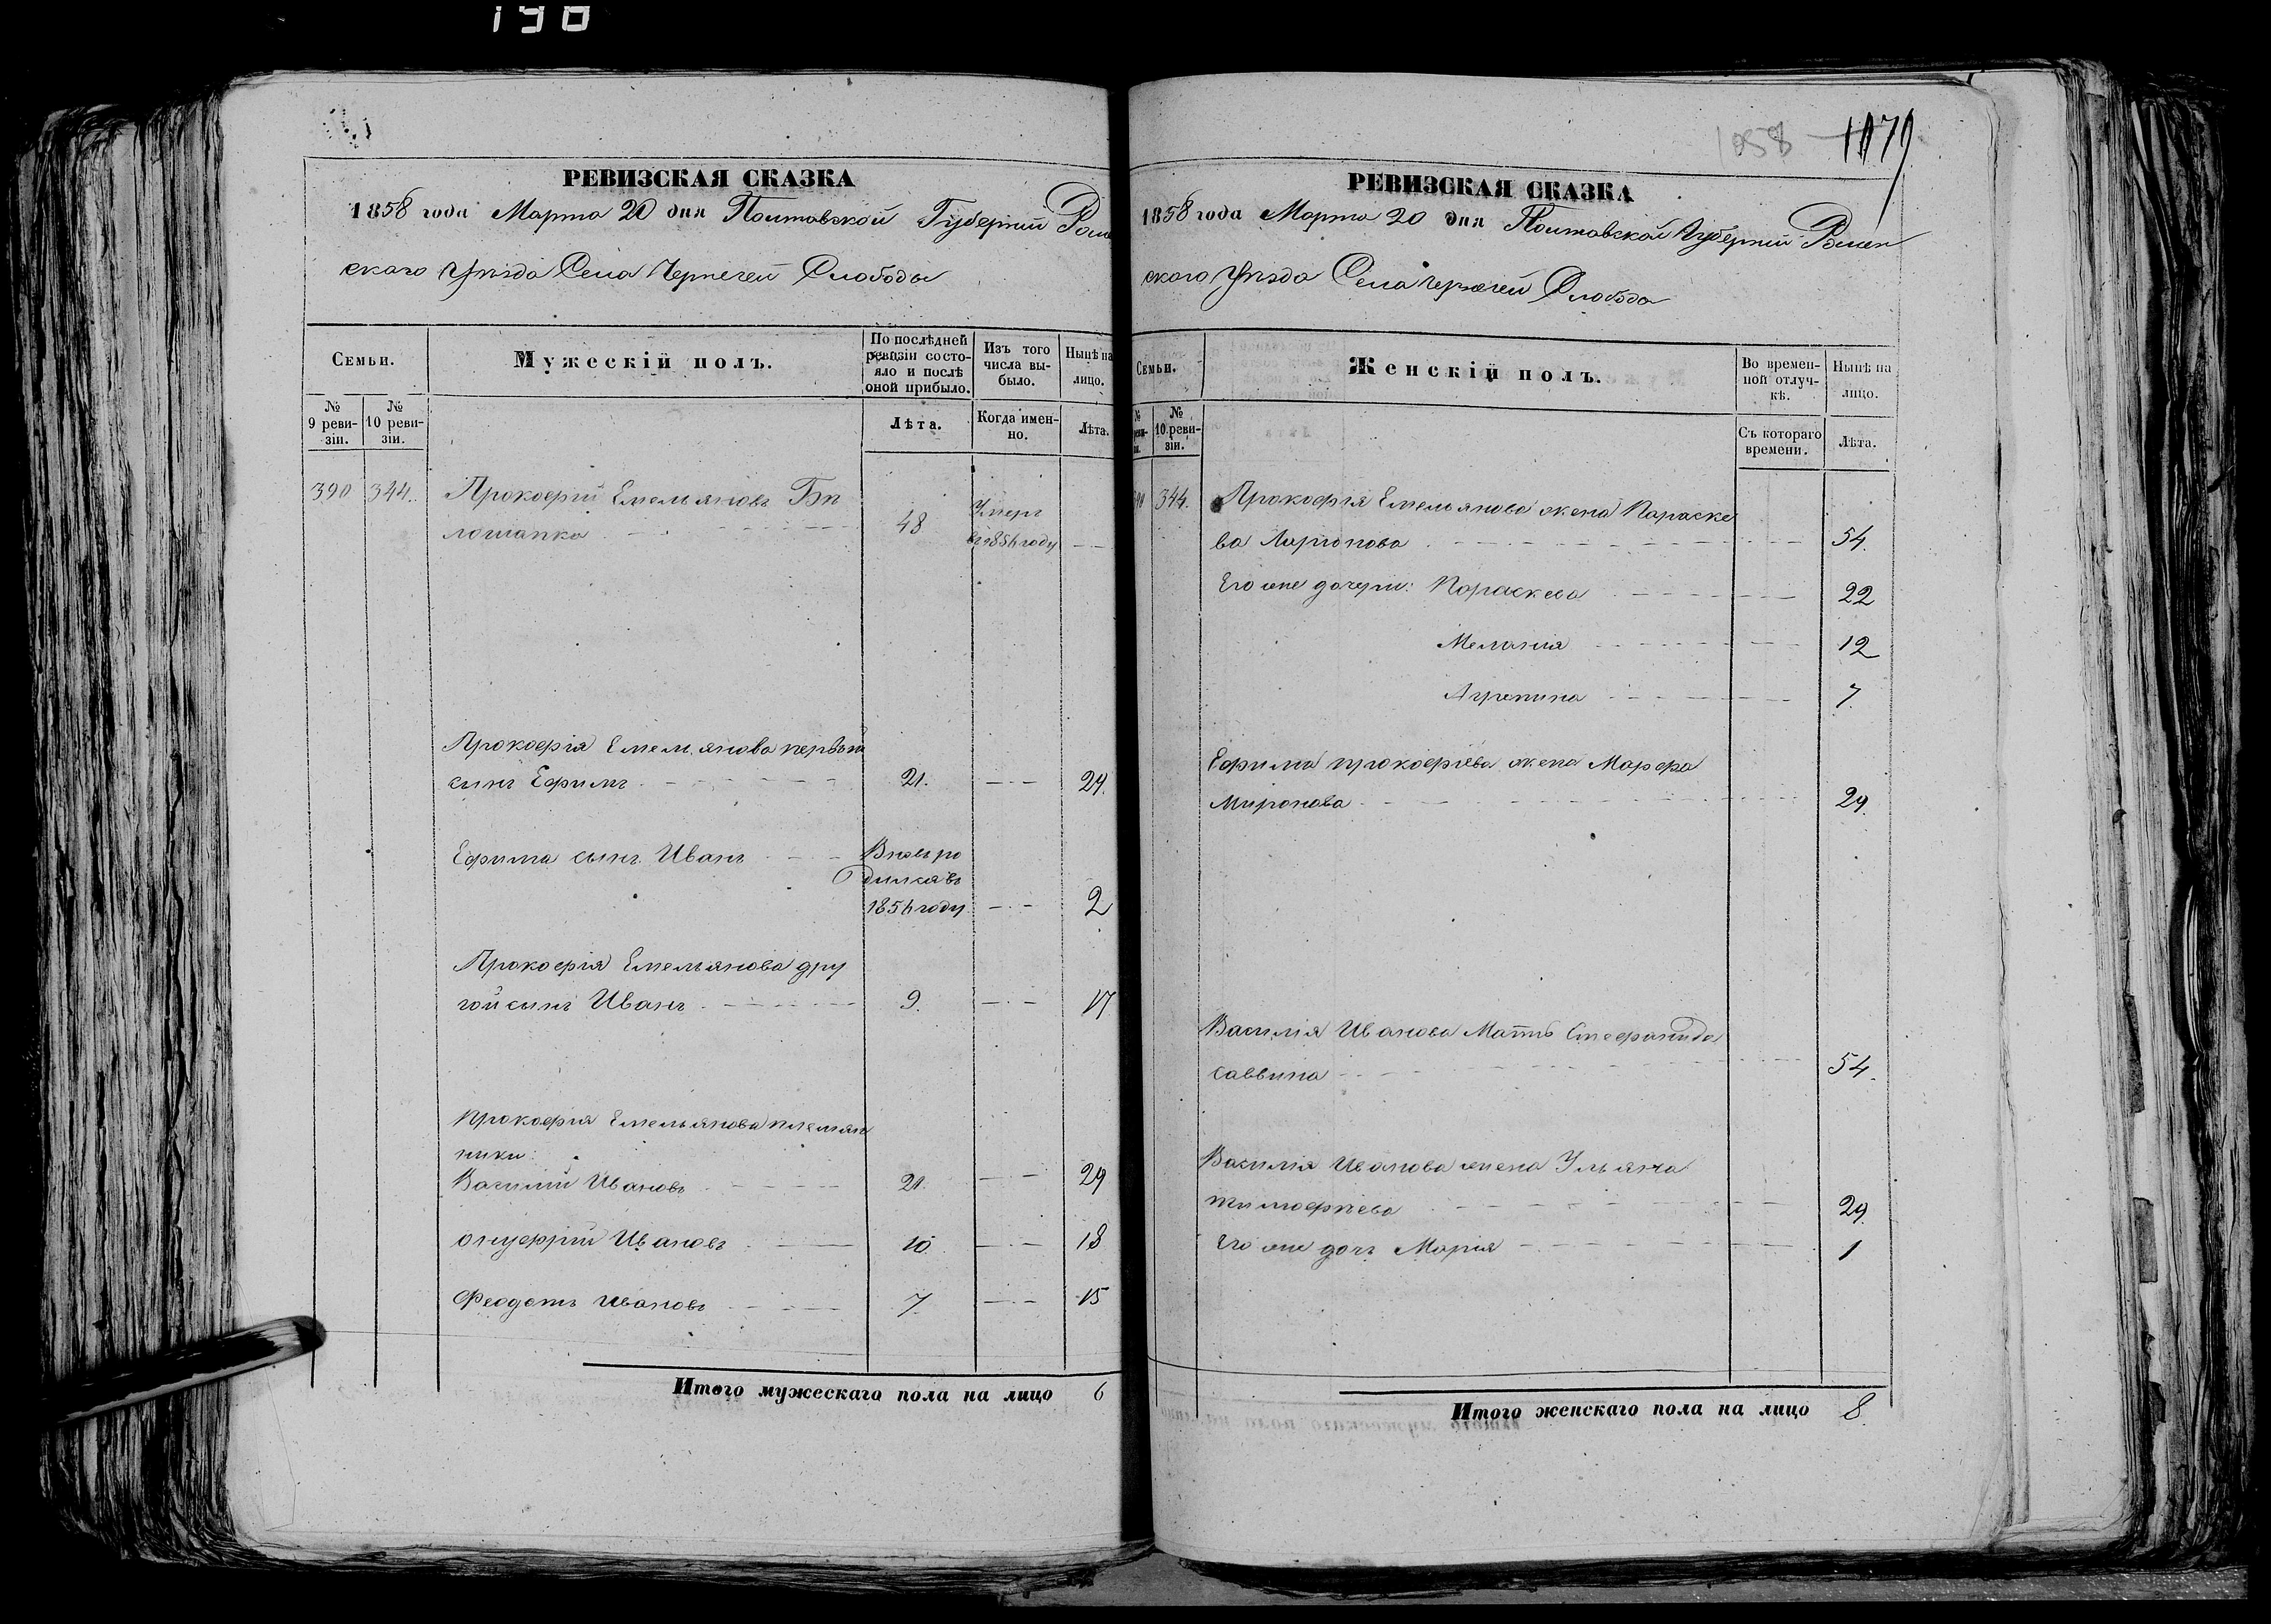 198
РЕВИЗСКАЯ СКАЗКА
1858 года Марта 20 дня Полтавской Губерніи Ромен
скаго Уѣзда Села Чернечей Слободы
Семьи.
Мужескій полъ.
По послѣдней ревизіи состояло и послѣ оной прибыло.
Изъ того числа выбыло.
Нынѣ на лицо.
№ 9 ревизіи.
№ 10 ревизіи.
Лѣта.
Когда именно.
Лѣта.
390 344. Прокофій Емельяновъ Бѣ
лошапка 48 Умеръ въ 1856 году
Прокофія Емельянова первый
сынъ Ефимъ 21. 29.
Ефима сынъ Иванъ Вновь ро
дился въ
1856 году 2
Прокофія Емельянова дру
гой сынъ Иванъ 9. 17
Прокофія Емельянова племян
ники:
Василій Ивановъ 21. 29
Онуфрій Ивановъ 10 18
Феодотъ Ивановъ 7. 15
Итого мужескаго пола на лицо 6
1058 1079
РЕВИЗСКАЯ СКАЗКА
1858 года Марта 20 дня Полтавской Губерніи Ромен
скаго Уѣзда Села Чернечей Слободы
Семьи.
Женскій полъ.
Во временной отлучкѣ.
Нынѣ на лицо.
№ 10 ревизіи.
Съ котораго времени.
Лѣта.
390 344. Прокофія Емельянова жена Параске
ва Ларіонова 54.
Его же дочери: Параскева 22
Меланія 12
Агрепина 7.
Ефима Прокофіева жена Марфа
Миронова 29.
Василія Иванова Мать Стефанида
Саввина 54.
Василія Иванова жена Ульяна
Тимофѣева 29.
Его же дочь Марія 1
Итого женскаго пола на лицо 8.